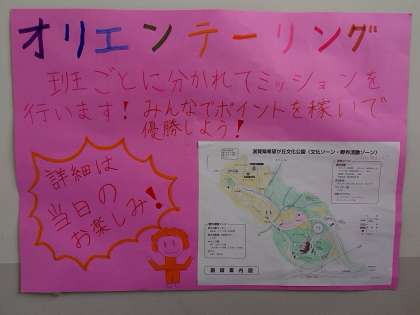 オリエンテーリング
班ごとに分かれてミッションを
行います！みんなでポイントを稼いで
優勝しよう！
詳細は
当日の
お楽しみ！
滋賀県希望が丘文化公園（文化ゾーン・野外活動ゾーン）
施設案内図